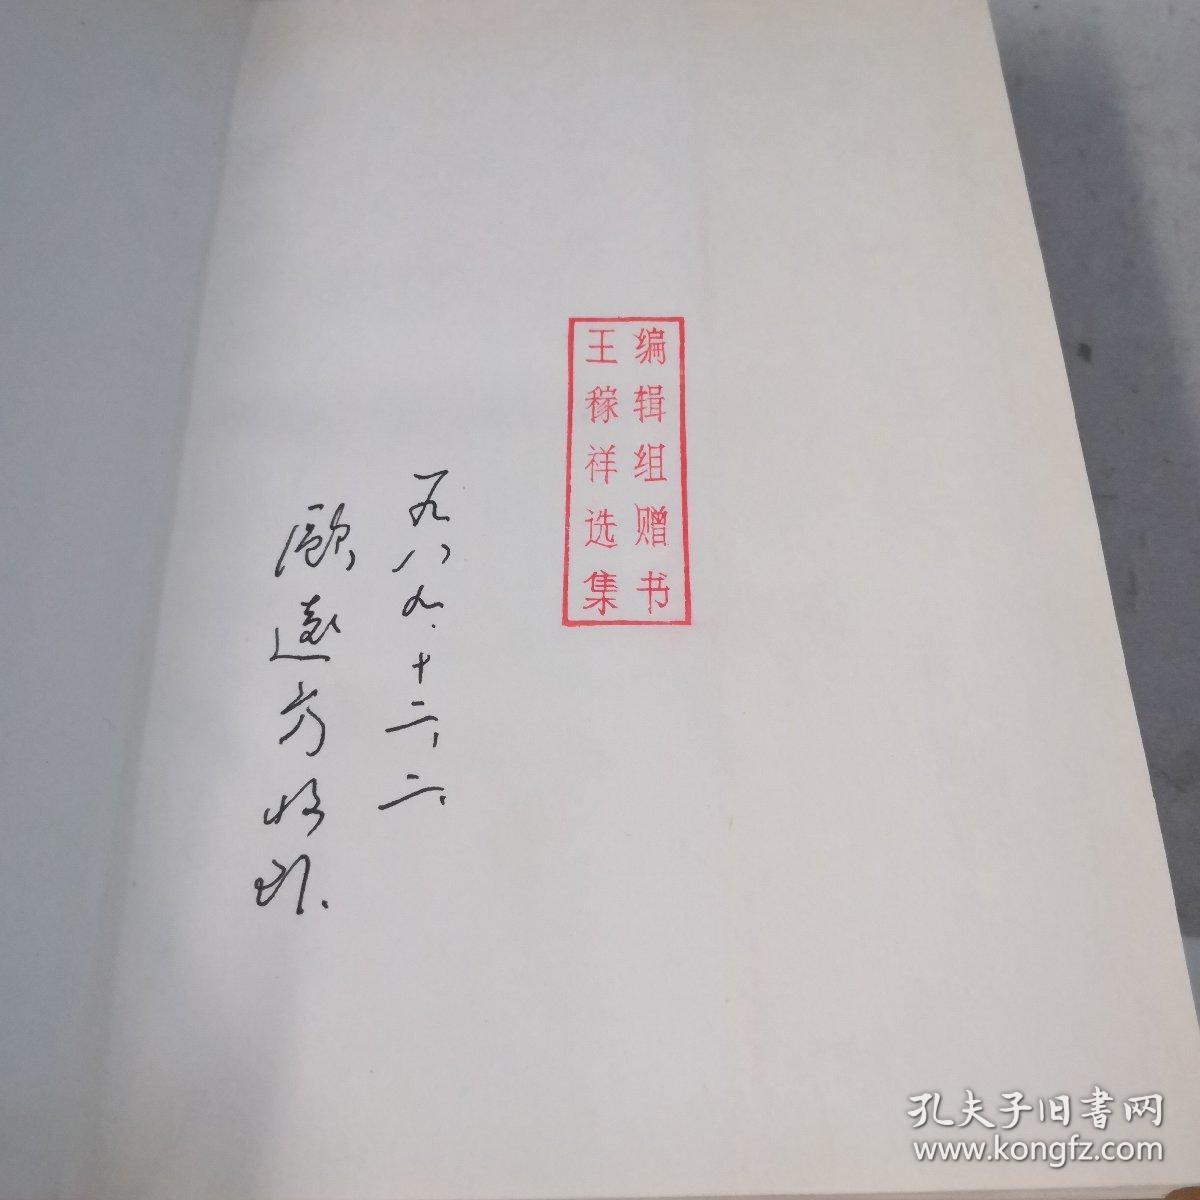 王稼祥选集
编辑组赠书
歐遠方收到.
一九八九.十二.二.
孔夫子旧书网
www.kongfz.com